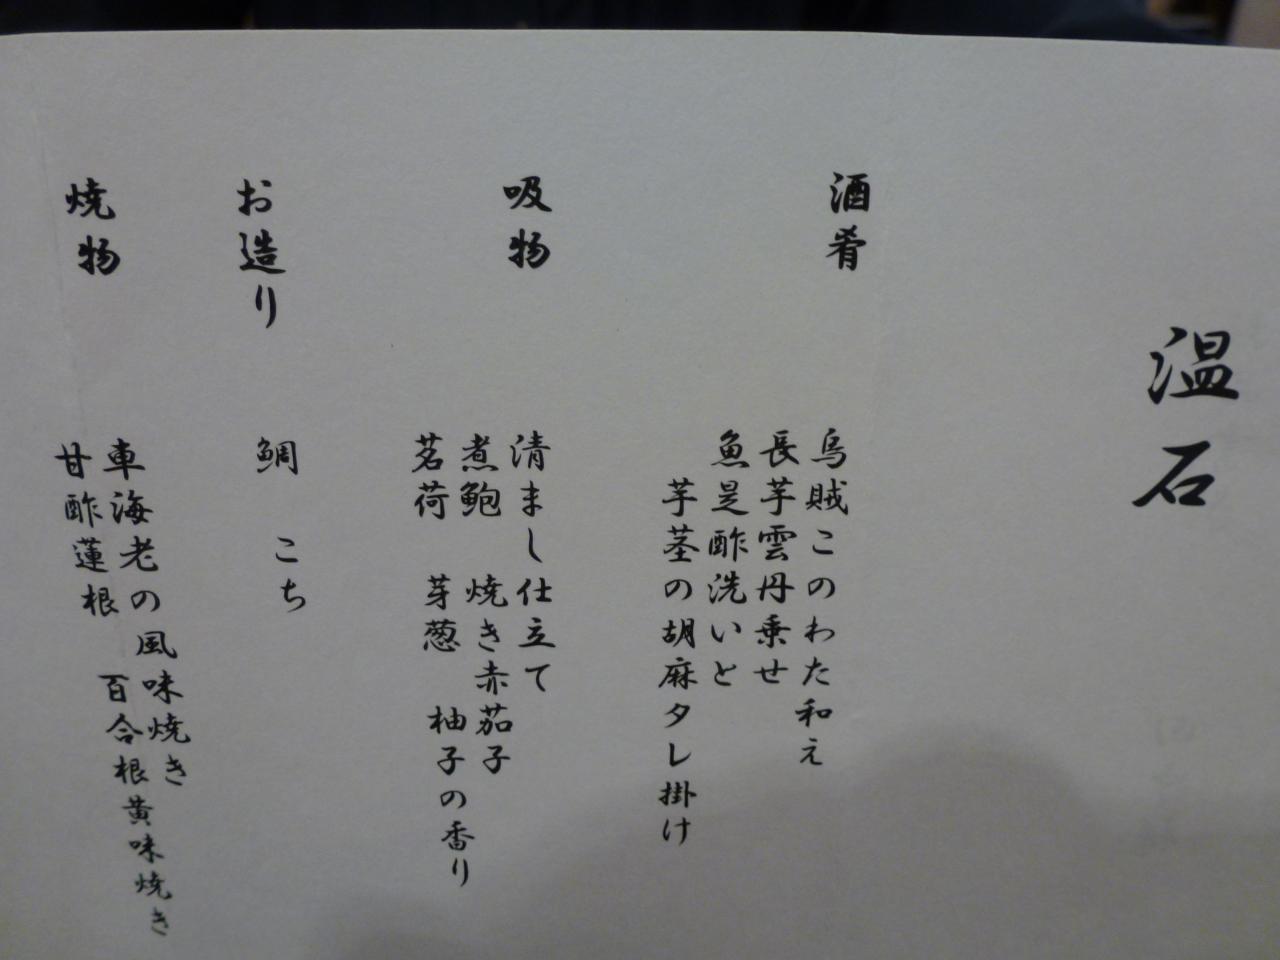 温石
酒肴
烏賊このわた和え
長芋雲丹乗せ
魚是酢洗いと
芋茎の胡麻タレ掛け
吸物
清まし仕立て
煮鮑 焼き赤茄子
茗荷 芽葱 柚子の香り
お造り
鯛 こち
焼物
車海老の風味焼き
甘酢蓮根 百合根黄味焼き